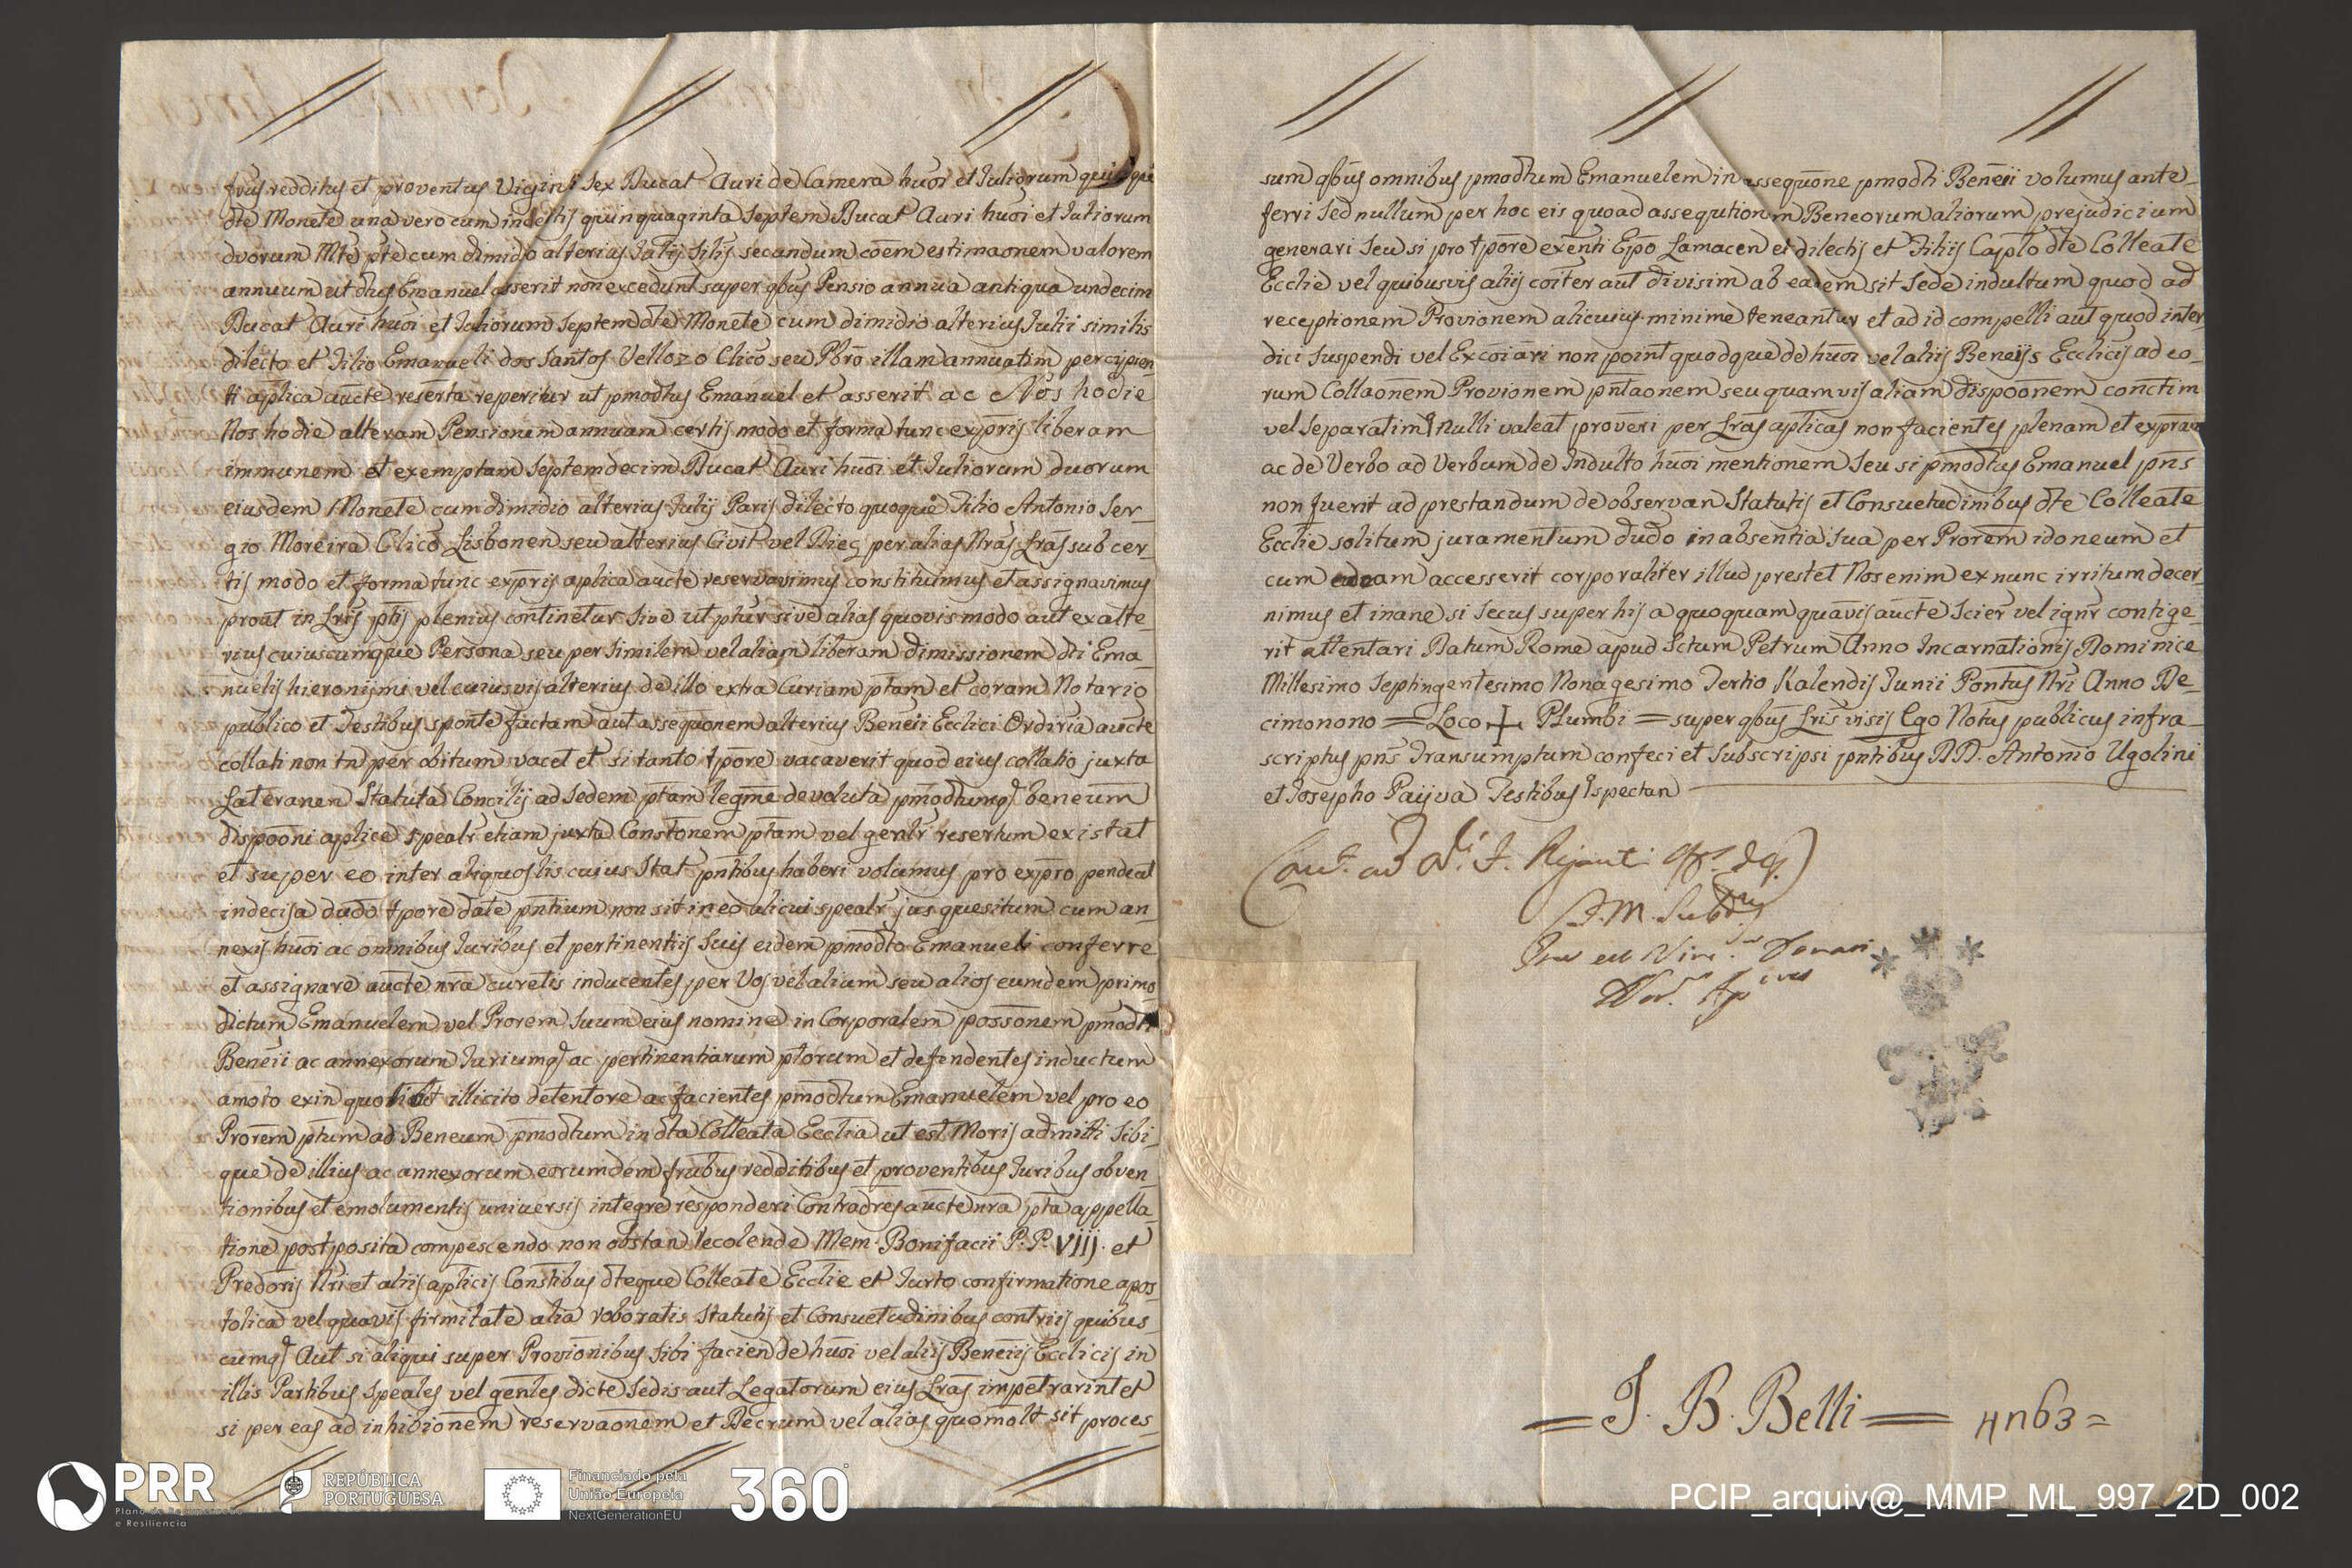 frus redditus et proventus Viginti Sex Ducat Auri de Camera huōi et Juliorum quinque
dte Monete una vero cum indeltis quinquaginta Septem Ducat Auri huōi et Juliorum
duorum Mte pte cum dimidio alterius Julij Silis secundum cōem estimaōnem valorem
annuum ut dtus Emanuel asserit non excedunt super qbus Pensio annua antiqua undecim
Ducat Auri huōi et Juliorum Septem dte Monete cum dimidio alterius Julii similis
dilecto et Filio Emanueli dos Santos Vellozo Clico seu Pbro illam annuatim percipien-
ti aplica aucte reserta reperitur ut pmodtus Emanuel et asserit ac Nos hodie
Nos hodie alteram Pensionem annuam certis modo et forma tunc expris liberam
immunem et exemptam Septemdecim Ducat Auri huōi et Juliorum duorum
eiusdem Monete cum dimidio alterius Julij Paris dilecto quoque Filio Antonio Ser-
gio Moreira Clico Lisbonen seu alterius Civit vel Dieç per alias Nras Lras sub cer-
tis modo et forma tunc expris aplica aucte reservavimus constituimus et assignavimus
prout in Lris ptis plenius continetur Sive ut ptur sive alias quovis modo aut ex alte-
rius cuiuscumque Persona seu per Similem vel aliam liberam dimissionem dti Ema-
nuelis hieronijmi vel cuiusvis alterius de illo extra Curiam ptam et coram Notario
publico et Testibus sponte factam aut assequōnem alterius Beneii Ecclici Ordiria aucte
collati non tn per obitum vacet et si tanto tpore vacaverit quod eius collatio juxta
Lateranen Statuta Concilij ad Sedem ptam legme devoluta pmodtumq beneum
dispōoni aplice spealr etiam juxta Constonem ptam vel genlr resertum existat
et super eo inter aliquos lis cuius Stat pntibus haberi volumus pro expro pendeat
indecisa dudo tpore date pntium non sit in eo alicui spealr jus quesitum cum an-
nexis huōi ac omnibus Juribus et pertinentiis Suis eidem pmodto Emanueli conferre
et assignare aucte nra curetis inducentes per Vos vel alium seu alios eumdem primo
dictum Emanuelem vel Prorem Suum eius nomine in Corporalem possonem pmodti
Beneii ac annexorum Juriumq ac pertinentiarum ptorum et defendentes inductum
amoto exin quolibt illicito detentore ac facientes pmodtum Emanuelem vel pro eo
Prorem ptum ad Beneum pmodtum in dta Colleata Ecclia ut est Moris admitti Sibi-
que de illius ac annexorum eorumdem frubus redditibus et proventibus Juribus obven-
tionibus et emolumentis universis integre responderi Contradres aucte nra pta appella-
tione postposita compescendo non obstan lecolende Mem. Bonifacii P. P. VIIJ. et
Predoris Nri et aliis aplicis Constibus dteque Colleate Ecclie et Jurto confirmatione apos-
tolica vel quavis firmitate alia roboratis Statutis et Consuetudinibus contriis quibus-
cumq Aut si aliqui super Provionibus Sibi facien de huōi vel aliis Beneiis Ecclicis in
illis Partibus Speales vel genles dicte Sedis aut Legatorum eius Lras impetrarint et
si per eas ad inhibionem reservaōnem et Decrum vel alias quomolt sit proces-
sum qbus omnibus pmodtum Emanuelem in assequōne pmodti Beneii volumus ante-
ferri Sed nullum per hoc eis quoad assequtionem Beneorum aliorum prejudicium
generari Seu si pro tpore exenti Epo Lamacen et dilectis et Filiis Caplo dte Colleate
Ecclie vel quibusvis aliis coiter aut divisim ab eadem sit Sede indultum quod ad
receptionem Provionem alicuius minime teneantur et ad id compelli aut quod inter
dici Suspendi vel Excōiāri non point quodque de huōi vel aliis Beneijs Ecclicis ad eo-
rum Collaōnem Provionem pntaonem seu quamvis aliam dispōonem conctim
vel Separatim nulli valeat proveri per Lras aplicas non facientes plenam et expram
ac de Verbo ad Verbum de Indulto huōi mentionem Seu si pmodtus Emanuel pns
non fuerit ad prestandum de observan Statutis et Consuetudinibus dte Colleate
Ecclie solitum juramentum dudo in absentia Sua per Prorem idoneum et
cum adeam accesserit corporaliter illud prestet Nos enim ex nunc irritum decer-
nimus et inane si Secus super his a quoquam quavis aucte Scier vel ignr contige-
rit attentari Datum Rome apud Sctum Petrum Anno Incarnationis Dominice
Millesimo Septingentesimo Nonagesimo Tertio Kalendis Junii Pontus Nri Anno De-
cimonono = Loco + Plumbi = super qbus Lris visis Ego Notus publicus infra-
scriptus pns Transumptum confeci et Subscripsi pntibus DD. Antonio Ugolini
et Josepho Paijva Testibus Spectan
= J. B. Belli =
PRR
Plano de Recuperação
e Resiliência
REPÚBLICA
PORTUGUESA
Financiado pela
União Europeia
NextGenerationEU
360°
PCIP_arquiv@_MMP_ML_997_2D_002